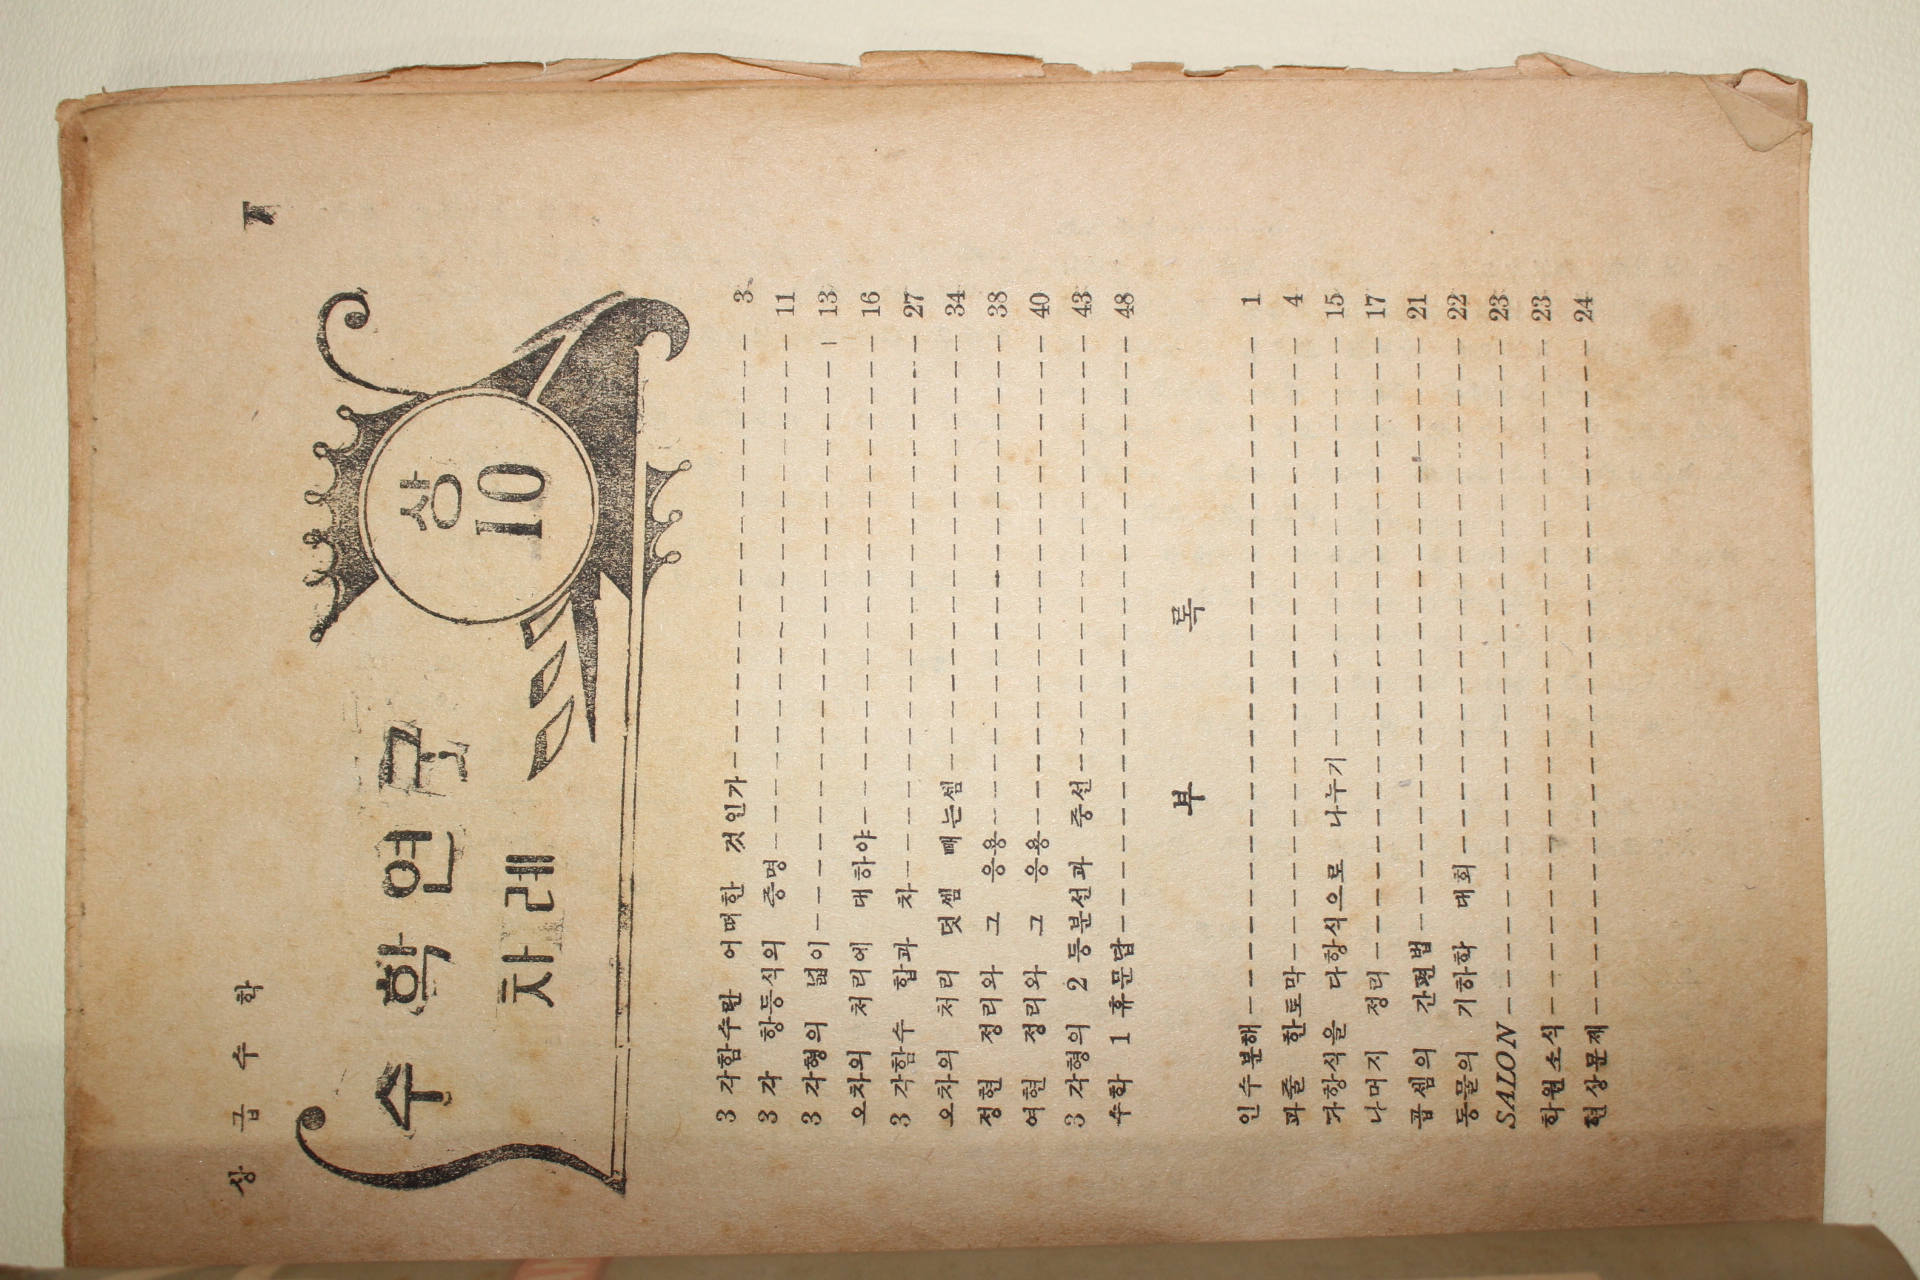 상급수학
수학연구
차례
상
10
3각함수란 어떠한 것인가 3
3각 항등식의 증명 11
3각형의 넓이 13
오차의 처리에 대하야 16
3각함수 합과 차 27
오차의 처리 덧셈 빼는셈 34
정현 정리와 그 응용 38
여현 정리와 그 응용 40
3각형의 2등분선과 중선 43
수학 1휴문답 48
부록
인수분해 1
파줄 한토막 4
다항식을 다항식으로 나누기 15
나머지 정리 17
곱셈의 간편법 21
동물의 기하학 대회 22
SALON 23
학원소식 23
현상문제 24